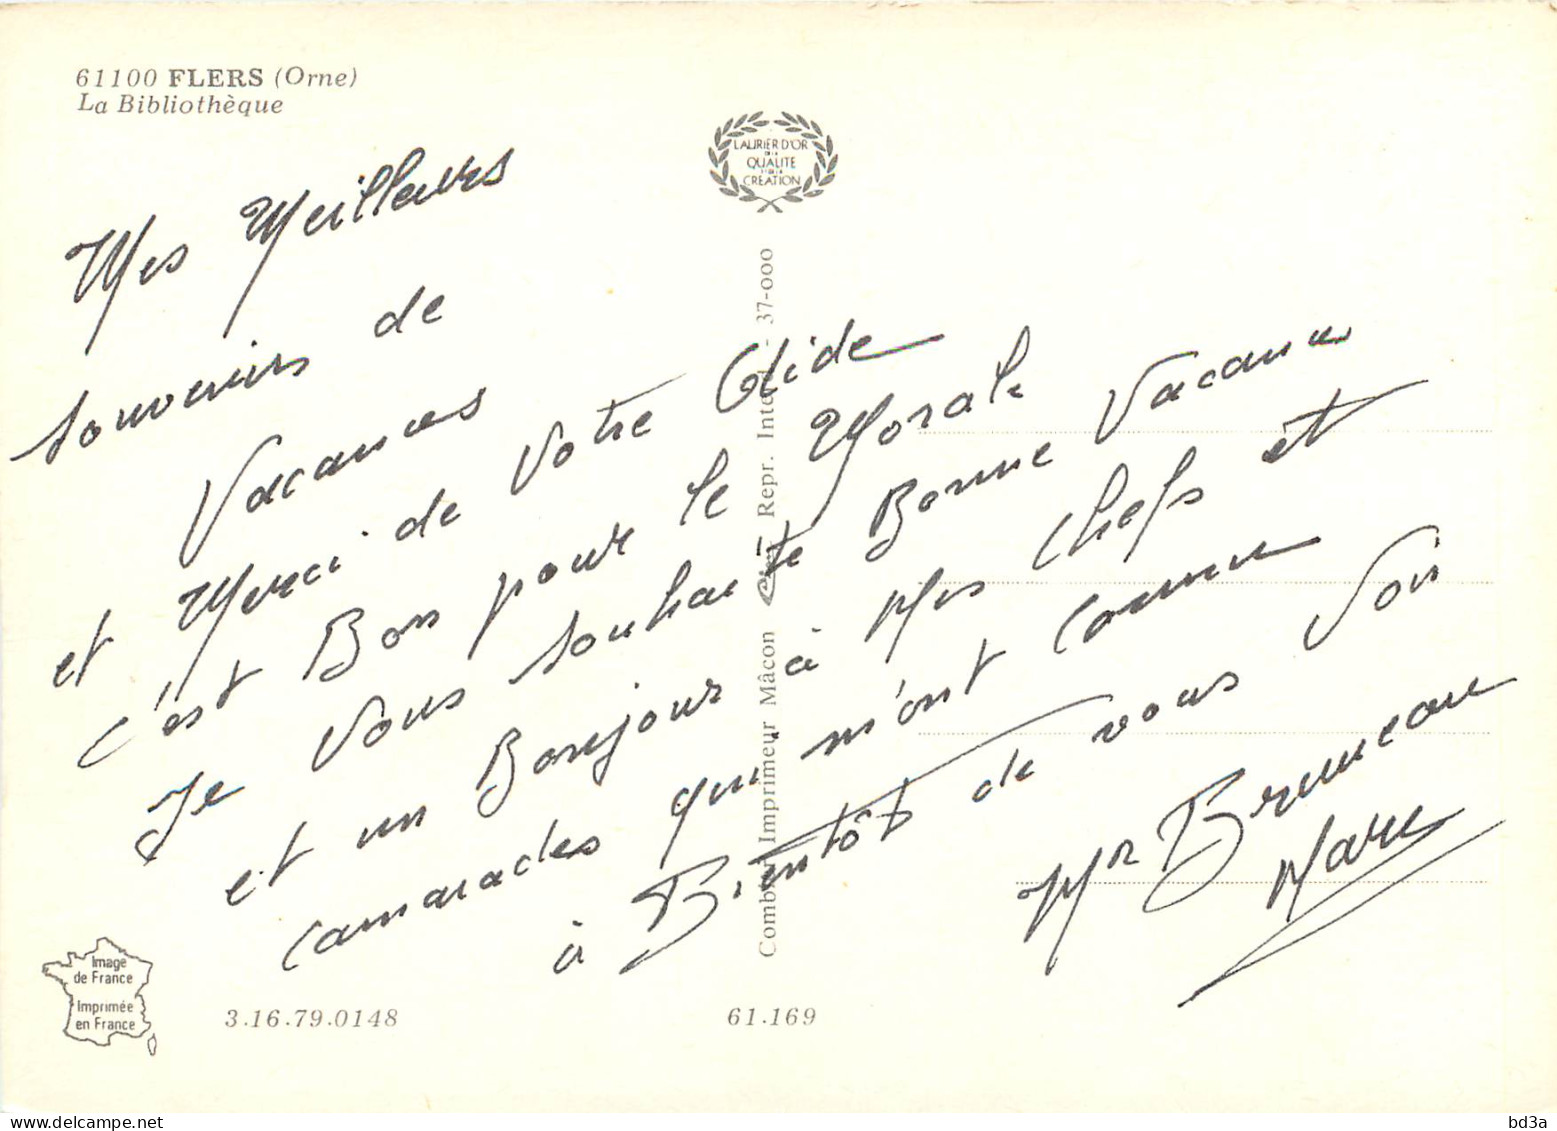 61100 FLERS (Orne)
La Bibliothèque
LAURIER D'OR
DE LA
QUALITE
ET DE LA
CREATION
Mes Meilleurs
souvenirs de
Vacances
et Merci de Votre Aide
c'est Bon pour le Morale
Je Vous souhaite Bonne Vacance
et un Bonjour à Mes Chefs et
camarades qui m'ont connu
à Bientôt de vous Voir
Mr Bruneau
Marc
Combier Imprimeur Mâcon Cim Repr. Interd. - 37-000
Image
de France
Imprimée
en France
3.16.79.0148
61.169
bd3a